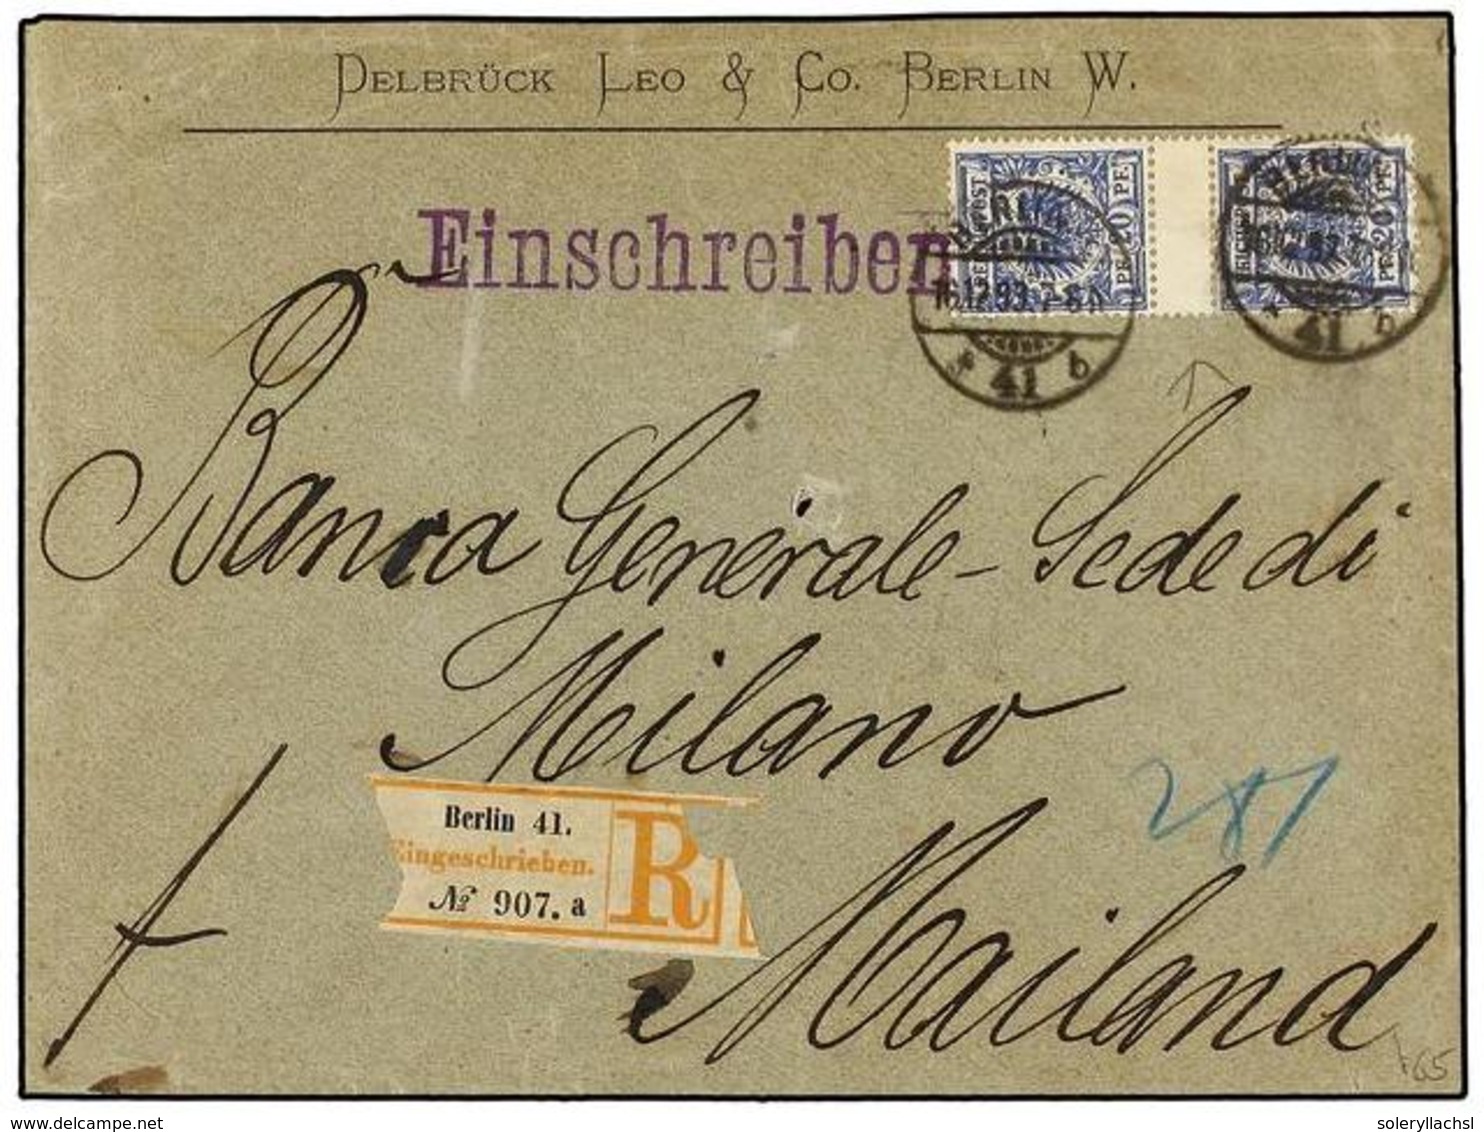 DELBRÜCK LEO & CO. BERLIN W.
Einschreiben
REICHSPOST 20 PF. PF. 20
BERLIN
16.12.93.7-8N
* 41 b
BERLIN
41 b
Banca Generale - Sede di
Milano
Berlin 41.
Eingeschrieben.
№ 907. a
R
Mailand
65
delcampe.net
soleryllachsl